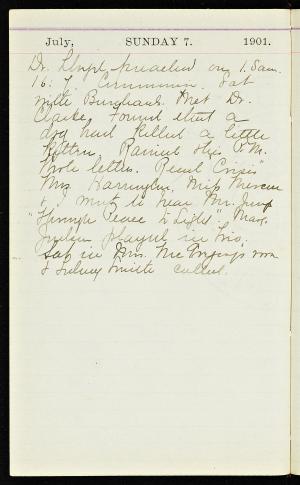 July, SUNDAY 7. 1901.
Dr. preached on 1. Sam.
16:7. Communion. Sat
with Burnhams. Met Dr.
Clarke. Found that a
dog had killed a little
kitten. Rained this P.M.
Wrote letters. Read "Crisis"
Mrs. Harrington, Miss
& I went to hear Mr. Jump
"Through Peace to Light". Marg.
played in trio.
Sat in Mrs. room
& Sidney Smith called.